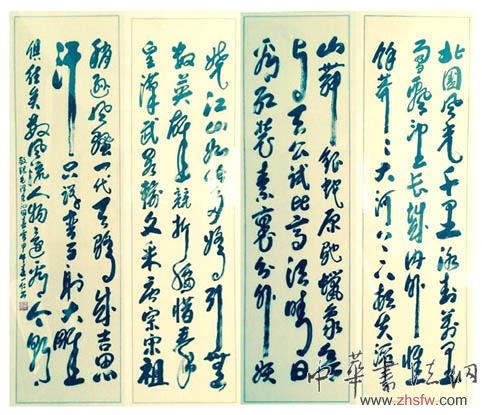 北国风光千里冰封万里
雪飘望长城内外惟
馀莽〻大河上下顿失滔〻
山舞银蛇原驰蜡象欲
与天公试比高须晴日
看红装素裹分外妖
娆江山如此多娇引无
数英雄竞折腰惜秦
皇汉武略输文采唐宗宋祖
稍逊风骚一代天骄成吉思
汗只识弯弓射大雕
俱往矣数风流人物还看今朝
敬录毛泽东沁园春雪甲午
中华书法网
www.zhsfw.com